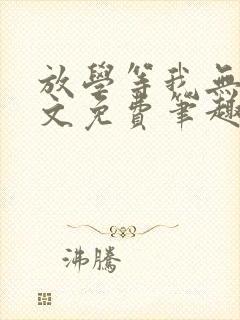 放學等我無
文免費筆趣
沸騰